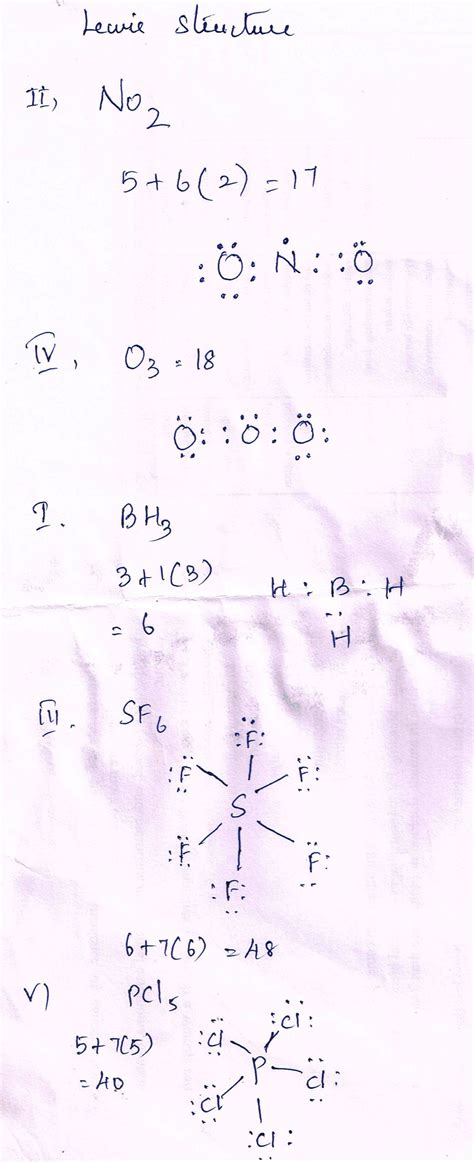 Lewis structure
II, NO2
5 + 6(2) = 17
:O: N : : O
IV, O3 = 18
O: : O : O:
I. BH3
3+1(3)
= 6
H : B : H
H
III. SF6
:F:
:F F:
S
:F F:
:F:
6+7(6) = 48
V) PCl5
5+7(5)
= 40
:Cl Cl:
P
Cl Cl:
:Cl: